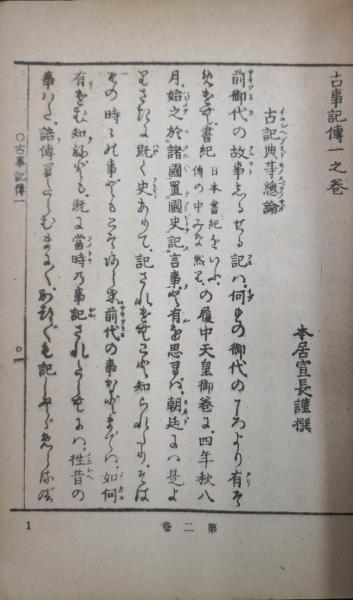 古事記傳一之卷
本居宣長謹撰
古記典等總論
前御代の故事しるせる記は、何れの御代のころより有そ
めけむ、書紀 日本書紀をいふ、傳の中みな然り、の履中天皇御卷に、四年秋八
月、始之於諸國置國史記言事と有を思へば、朝廷には是よ
りさきに既く史ありて、記されけむこと知られたり、そは
その時々の事どもこそあらめ、前代の事などまでは、如何
有けむ知ねども、既に當時の事記されたらむには、往昔の
事はた、語傳
古事記傳一
第二卷
1